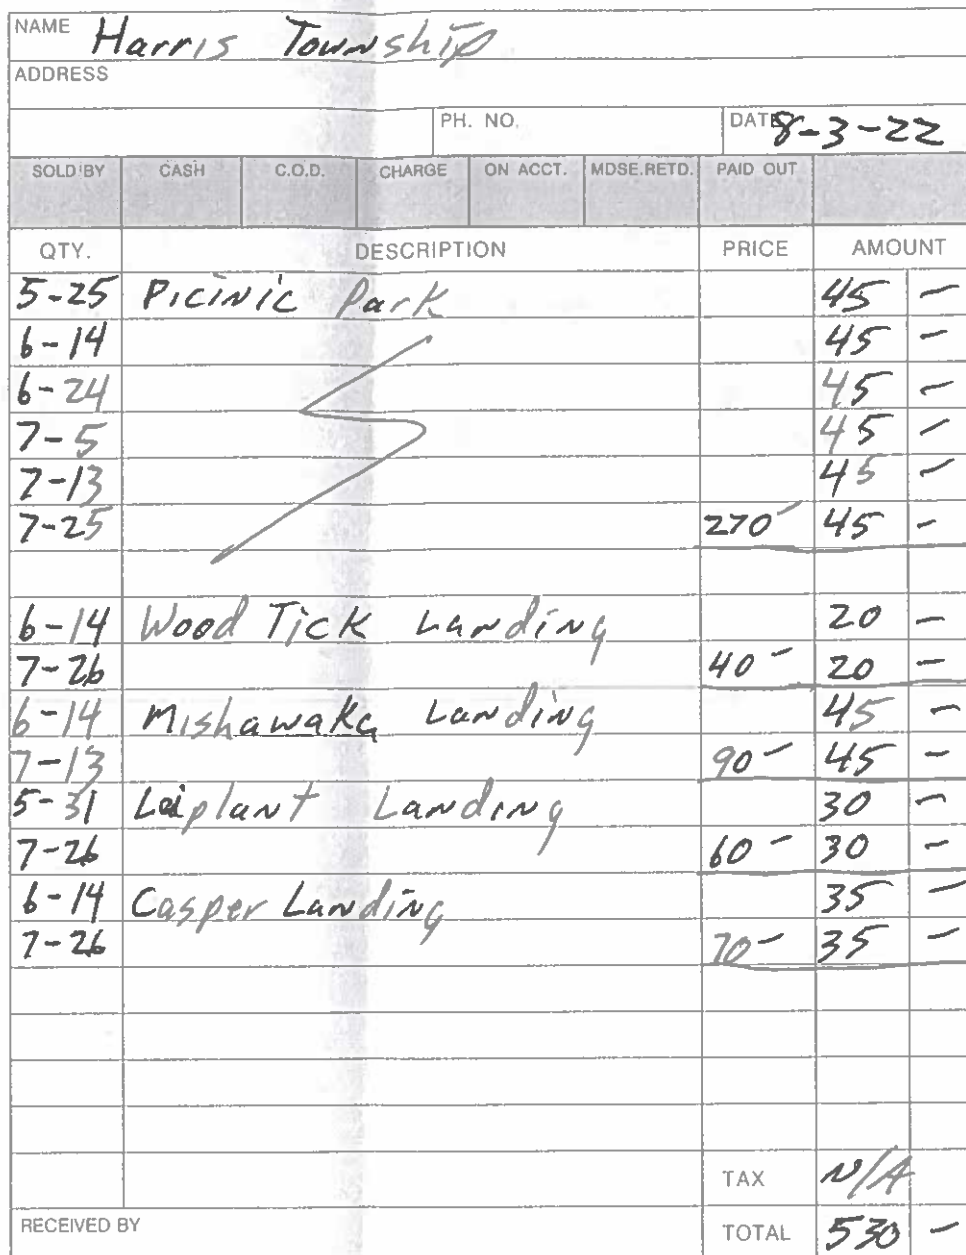 NAME Harris Township
ADDRESS
PH. NO. DATE 8-3-22
SOLD BY CASH C.O.D. CHARGE ON ACCT. MDSE.RETD. PAID OUT
QTY. DESCRIPTION PRICE AMOUNT
5-25 Picinic Park 45 -
6-14 45 -
6-24 45 -
7-5 45 -
7-13 45 -
7-25 270- 45 -
6-14 Wood Tick Landing 20 -
7-26 40- 20 -
6-14 Mishawaka Landing 45 -
7-13 90- 45 -
5-31 Laiplant Landing 30 -
7-26 60- 30 -
6-14 Casper Landing 35 -
7-26 70- 35 -
TAX N/A
RECEIVED BY TOTAL 530 -